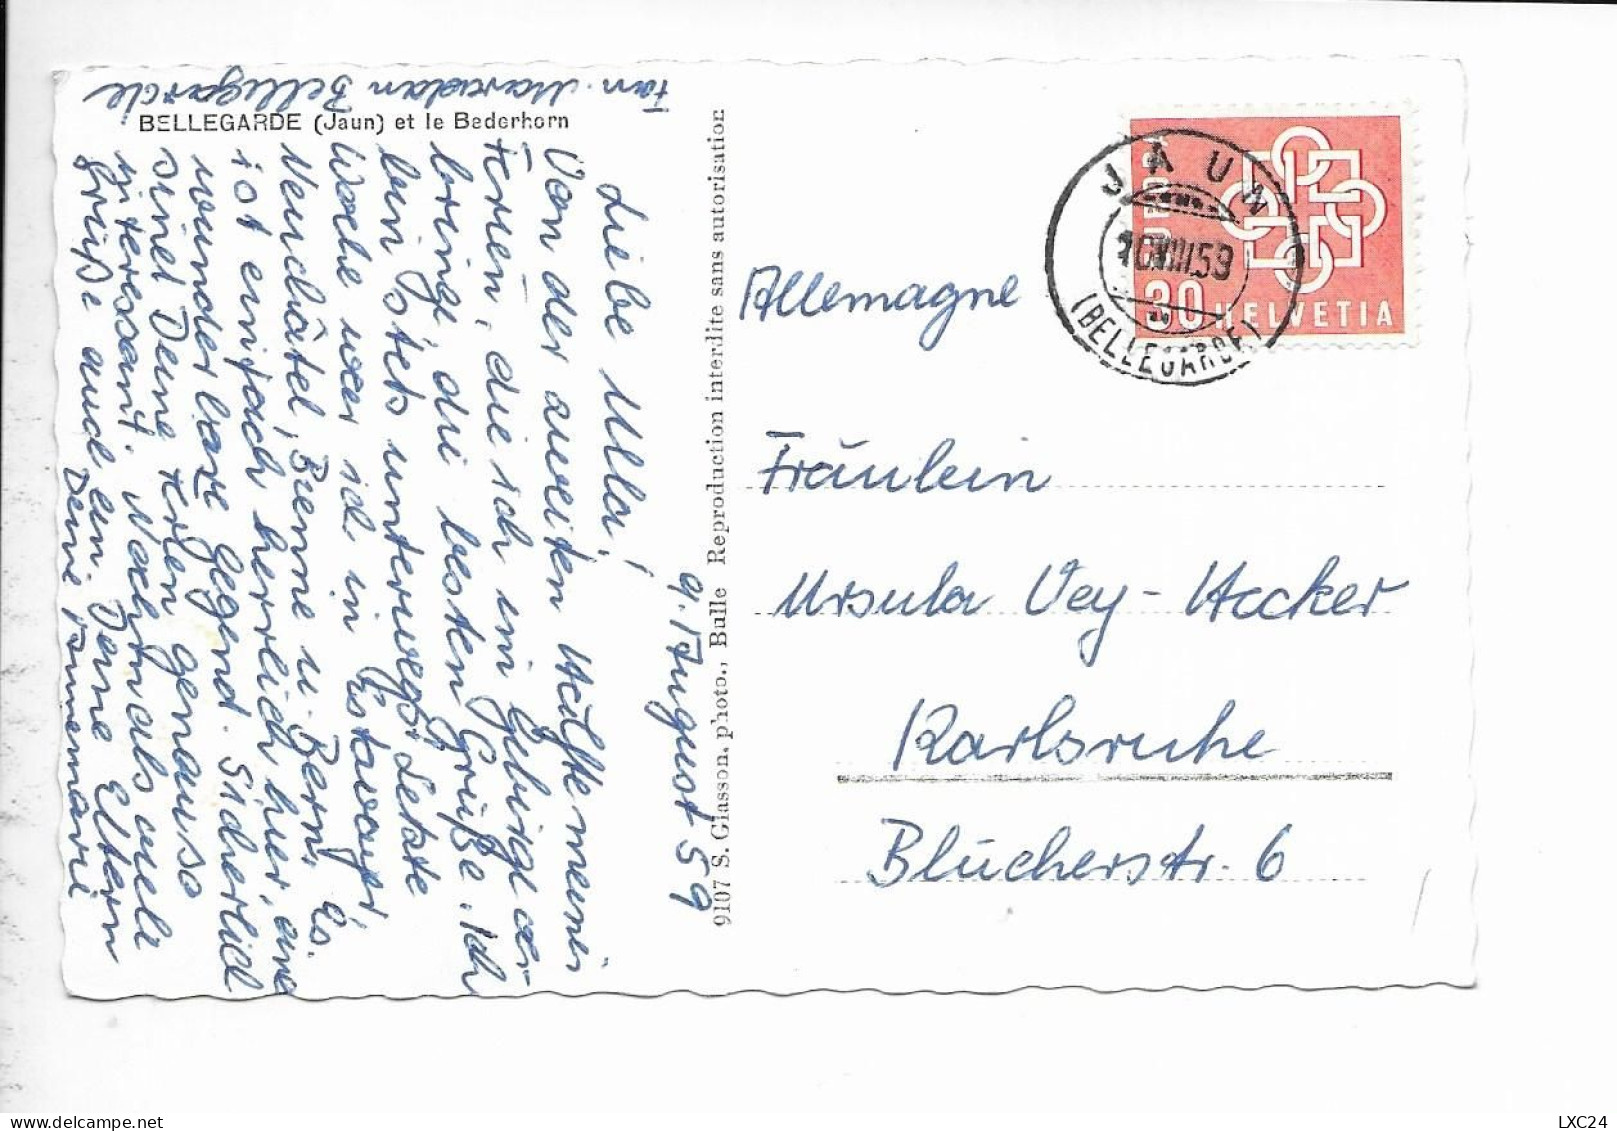 BELLEGARDE (Jaun) et le Bederhorn
Fam. Maradan Bellegarde
9. August 59
Liebe Ulla,
Von der zweiten Hälfte meiner
Ferien, die ich im Gebirge ver
bringe, die besten Grüße. Ich
bin stets unterwegs. Letzte
Woche war ich in Estavayer,
Neuchâtel, Bienne u. Bern. Es
ist einfach herrlich hier, eine
wunderbare Gegend. Sicherlich
sind Deine Ferien genauso
interessant. Nochmals viele
Grüße auch an Deine Eltern
Deine Annemarie
9107 S. Glasson, photo., Bulle Reproduction interdite sans autorisation
JAUN
10.VIII.59
(BELLEGARDE)
EUROPA
30 HELVETIA
Allemagne
Fräulein
Ursula Vey-Hecker
Karlsruhe
Blücherstr. 6
LXC24